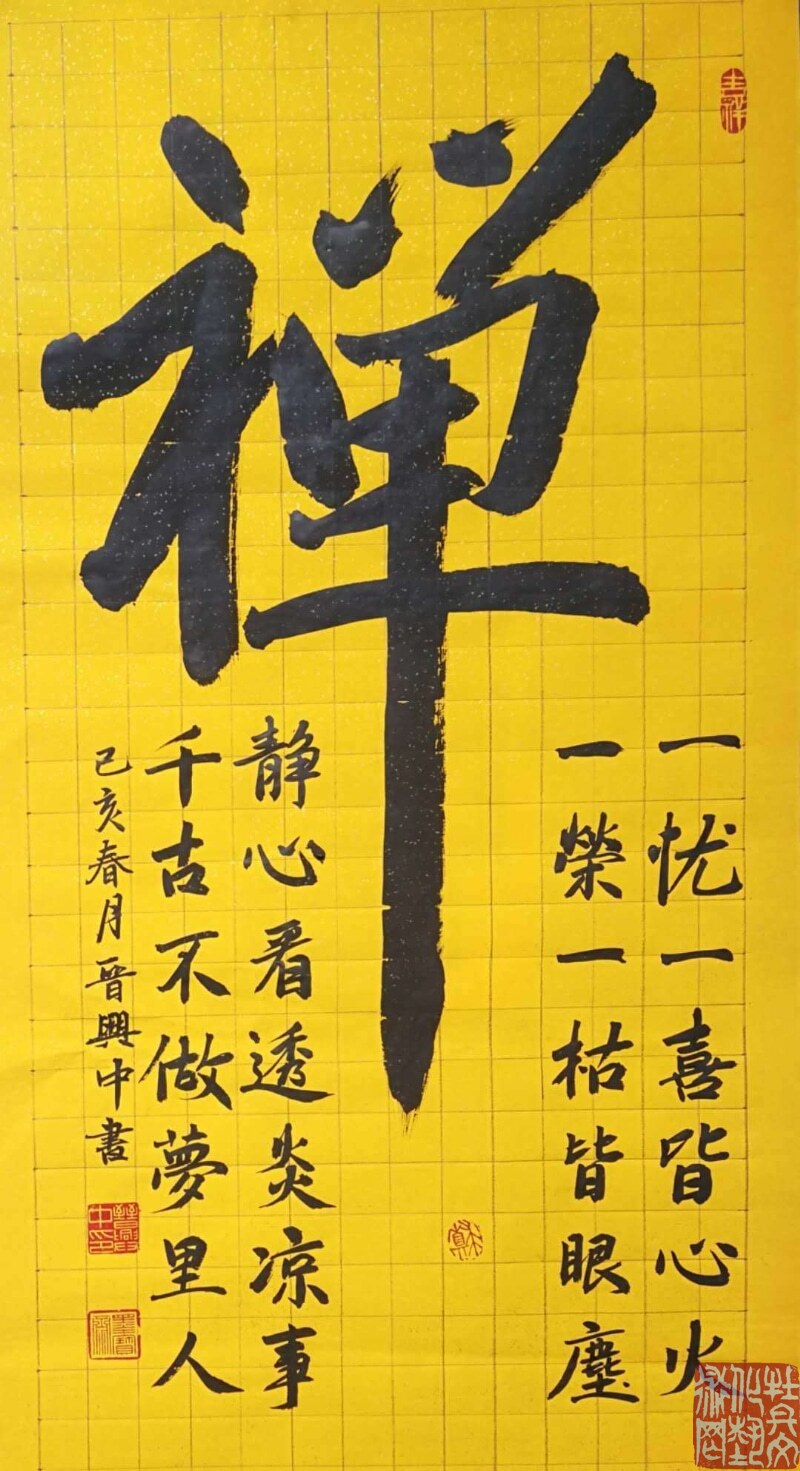 禅
一忧一喜皆心火
一榮一枯皆眼塵
静心看透炎凉事
千古不做夢里人
己亥春月晋興中書